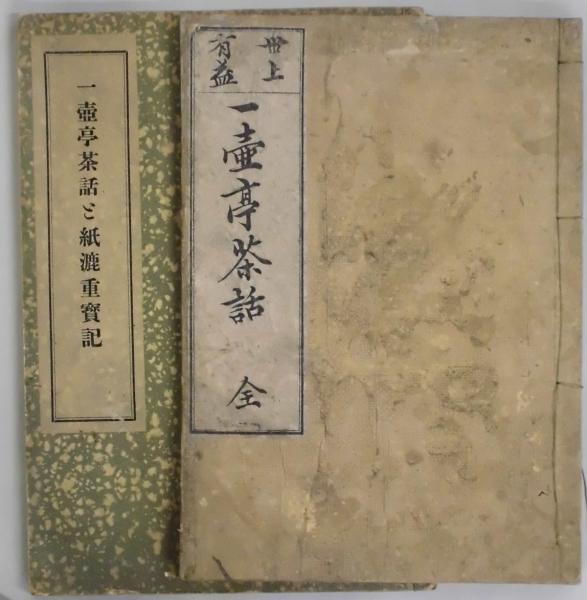 世上
有益
一壺亭茶話 全
一壺亭茶話と紙漉重寶記